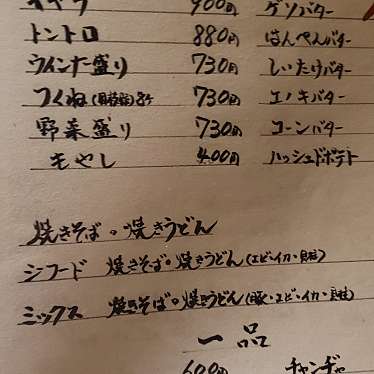 900円 ゲソバター
トントロ 880円 はんぺんバター
ウインナー盛り 730円 しいたけバター
つくね 730円 エノキバター
野菜盛り 730円 コーンバター
もやし 400円 ハッシュドポテト
焼きそば・焼きうどん
シーフード 焼きそば・焼きうどん(エビ・イカ・貝柱)
ミックス 焼きそば・焼きうどん(豚・エビ・イカ・貝柱)
一品
600円 チャンヂャ